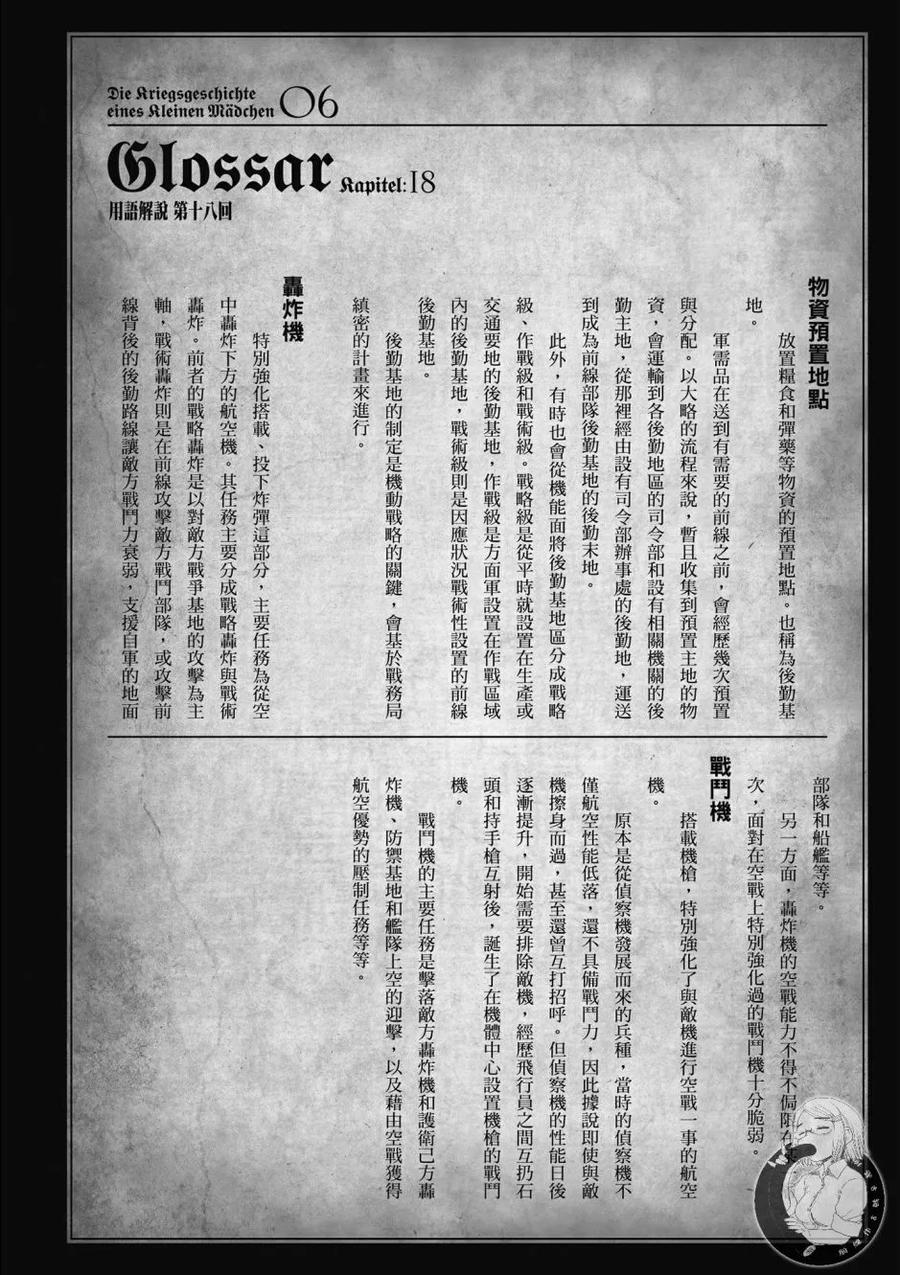 Die Kriegsgeschichte
eines Kleinen Mädchen 06
Glossar Kapitel:18
用語解說 第十八回
物資預置地點
放置糧食和彈藥等物資的預置地點。也稱為後勤基
地。
軍需品在送到有需要的前線之前，會經歷幾次預置
與分配。以大略的流程來說，暫且收集到預置主地的物
資，會運輸到各後勤地區的司令部和設有相關機關的後
勤主地，從那裡經由設有司令部辦事處的後勤地，運送
到成為前線部隊後勤基地的後勤末地。
此外，有時也會從機能面將後勤基地區分成戰略
級、作戰級和戰術級。戰略級是從平時就設置在生產或
交通要地的後勤基地，作戰級是方面軍設置在作戰區域
內的後勤基地，戰術級則是因應狀況戰術性設置的前線
後勤基地。
後勤基地的制定是機動戰略的關鍵，會基於戰務局
縝密的計畫來進行。
轟炸機
特別強化搭載、投下炸彈這部分，主要任務為從空
中轟炸下方的航空機。其任務主要分成戰略轟炸與戰術
轟炸。前者的戰略轟炸是以對敵方戰爭基地的攻擊為主
軸，戰術轟炸則是在前線攻擊敵方戰鬥部隊，或攻擊前
線背後的後勤路線讓敵方戰鬥力衰弱，支援自軍的地面
部隊和船艦等等。
另一方面，轟炸機的空戰能力不得不侷限
次，面對在空戰上特別強化過的戰鬥機十分脆弱。
戰鬥機
搭載機槍，特別強化了與敵機進行空戰一事的航空
機。
原本是從偵察機發展而來的兵種，當時的偵察機不
僅航空性能低落，還不具備戰鬥力，因此據說即使與敵
機擦身而過，甚至還曾互打招呼。但偵察機的性能日後
逐漸提升，開始需要排除敵機，經歷飛行員之間互扔石
頭和持手槍互射後，誕生了在機體中心設置機槍的戰鬥
機。
戰鬥機的主要任務是擊落敵方轟炸機和護衛己方轟
炸機、防禦基地和艦隊上空的迎擊，以及藉由空戰獲得
航空優勢的壓制任務等等。